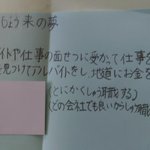 しょう来の夢
イトや仕事の面せつに受かって仕事を
見つけてアルバイトをし地道にお金を
(とにかくしゅう職する)
(どの会社でも良いからしゅう職